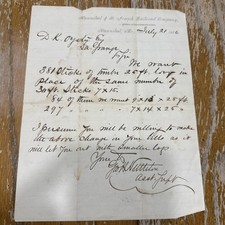 Hannibal & St. Joseph Railroad Company
July 21
D K Oyster Esq
La Grange
We want
381 Sticks of timber 20 ft. long in
place of the same number of
30 ft Sticks 7x15.
84 of them in must 7x16 x 20 ft
297 " " " 7x14 x 20 "
I presume you will be willing to make
the above change in your bills as it
will let you out with smaller logs
Yours &c
Asst Supt